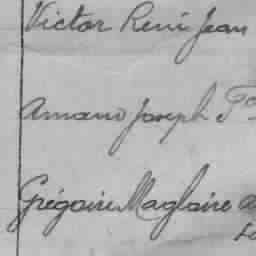 Victor René Jean
Amand Joseph
Grégoire Magloire